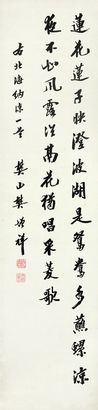 蓮花蓮子映澄波湖是鴛鴦多藕螺涼
夜不知風露滿萬花獨唱采菱歌
右北海納涼一首
樊山樊增祥